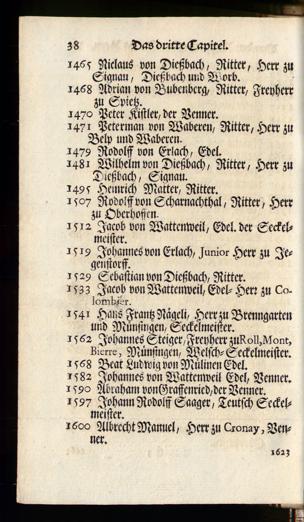 38 Das dritte Capitel.
1465 Niclaus von Dießbach, Ritter, Herr zu
Signau, Dießbach und Worb.
1468 Adrian von Bubenberg, Ritter, Freyherr
zu Spietz.
1470 Peter Kistler, der Venner.
1471 Peterman von Waberen, Ritter, Herr zu
Belp und Waberen.
1479 Rodolff von Erlach, Edel.
1481 Wilhelm von Dießbach, Ritter, Herr zu
Dießbach, Signau.
1495 Heinrich Matter, Ritter.
1507 Rodolff von Scharnachthal, Ritter, Herr
zu Oberhoffen.
1512 Jacob von Wattenweil, Edel. der Seckel-
meister.
1519 Johannes von Erlach, Junior Herr zu Je-
genstorff.
1529 Sebastian von Dießbach, Ritter.
1533 Jacob von Wattenweil, Edel- Herr zu Co-
lombier.
1541 Hans Frantz Nägeli, Herr zu Bremgarten
und Münsingen, Seckelmeister.
1562 Johannes Steiger, Freyherr zu Roll, Mont,
Bierre, Münsingen, Welsch-Seckelmeister.
1568 Beat Ludwig von Mülinen Edel.
1582 Johannes von Wattenweil Edel, Venner.
1590 Abraham von Graffenried, der Venner.
1597 Johann Rodolff Saager, Teutsch Seckel-
meister.
1600 Albrecht Manuel, Herr zu Cronay, Ven-
ner.
1623